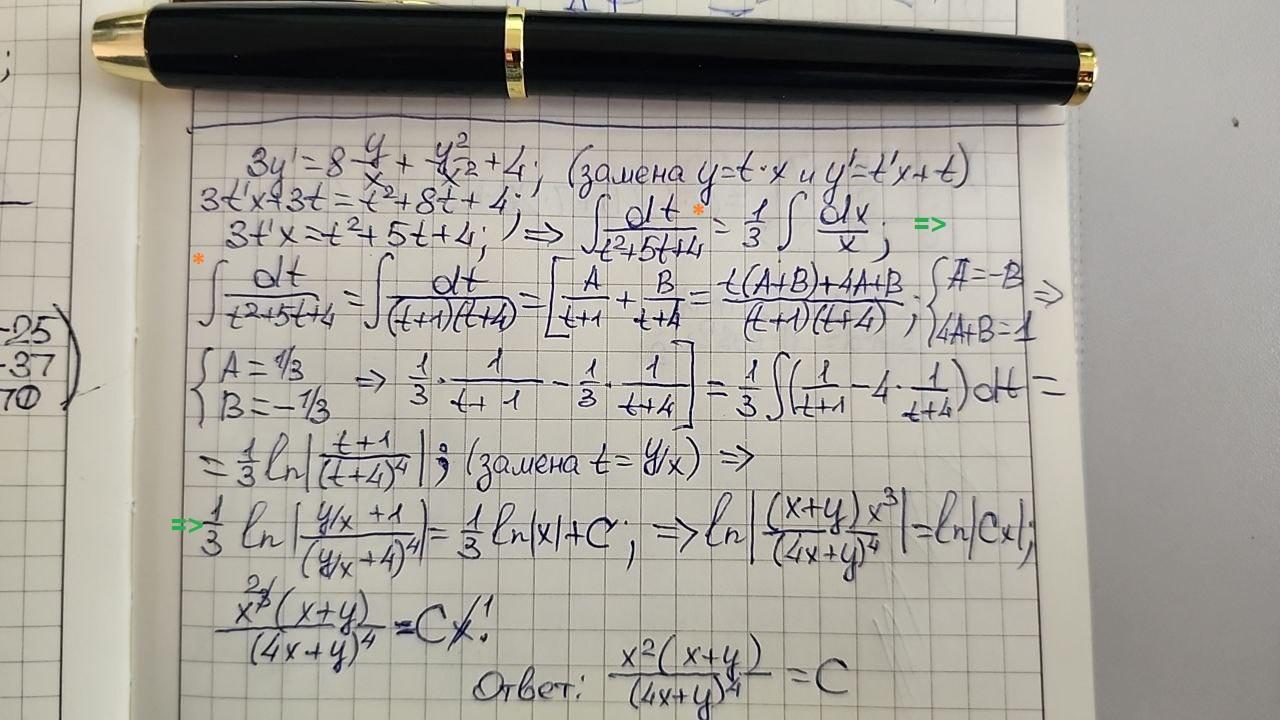 3y' = 8 y/x + y²/x² + 4; (замена y=t·x и y'=t'x+t)
3t'x+3t = t²+8t+4;
3t'x = t²+5t+4; => ∫ dt/(t²+5t+4) * = 1/3 ∫ dx/x; =>
* ∫ dt/(t²+5t+4) = ∫ dt/((t+1)(t+4)) = [A/(t+1) + B/(t+4) = (t(A+B)+4A+B)/((t+1)(t+4)); { A=-B 4A+B=1 =>
{ A = 1/3 B = -1/3 => 1/3 · 1/(t+1) - 1/3 · 1/(t+4)] = 1/3 ∫(1/(t+1) - 4 · 1/(t+4)) dt =
= 1/3 ln|(t+1)/(t+4)⁴|; (замена t = y/x) =>
=> 1/3 ln|(y/x + 1)/(y/x + 4)⁴| = 1/3 ln|x| + C; => ln|(x+y)x³/(4x+y)⁴| = ln|Cx|;
x²(x+y)/(4x+y)⁴ = Cx 1
Ответ: x²(x+y)/(4x+y)⁴ = C
-25
-37
70